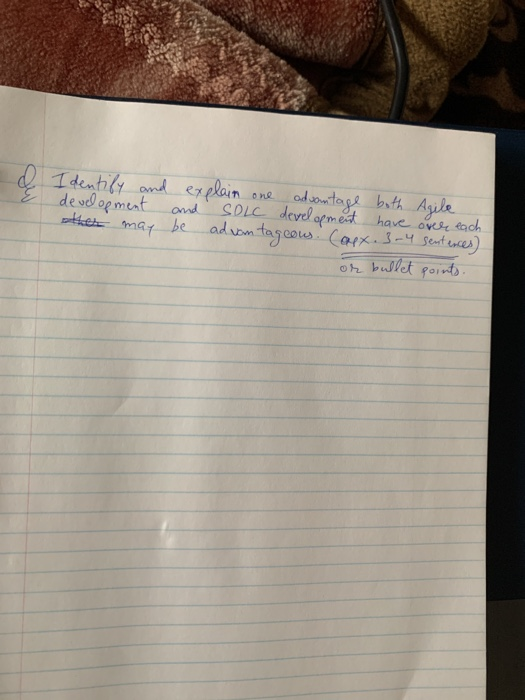 Q Identify and explain one advantage both Agile
development and SDLC development have over each
other may be advantageous. (apx. 3-4 sentences)
or bullet points.